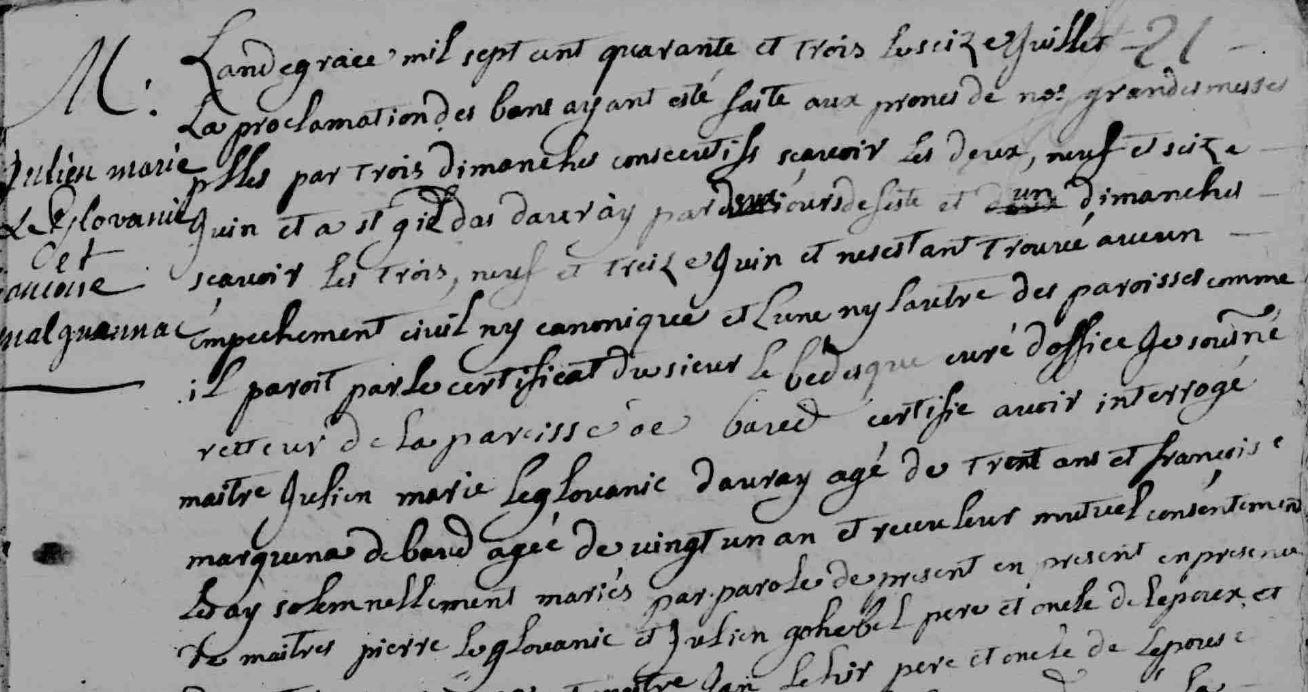 M.
Julien marie
Le Glovanic
et
ancoise
Landegrace mil sept cent quarante et trois le seize Juillet 21
La proclamation des bans ayant esté faite aux prones de nos grandes messes
plles par trois dimanches consecutifs sçavoir les deux, neuf et seize
Juin et a st gildas dauray par jours de feste et un dimanches
sçavoir les trois, neuf et treize Juin et nesestant trouvé aucun
empechement civil ny canonique et Lune ny Lautre des paroisses comme
il paroit par le certificat du sieur le bedesque curé doffice Je sousné
retteur de La paroisse de baud certifie avoir interrogé
maitre Julien marie leglouanic dauray agé de trent ans et francoise
marquena de baud agée de vingt un an et receu leur mutuel consentement
Les ay solemnellement mariés par parole de present en present en presence
de maitres pierre Leglouanic et Julien gohebel pere et oncle de Lepoux et
maitre Jan Le hir pere et oncle de Lepouse